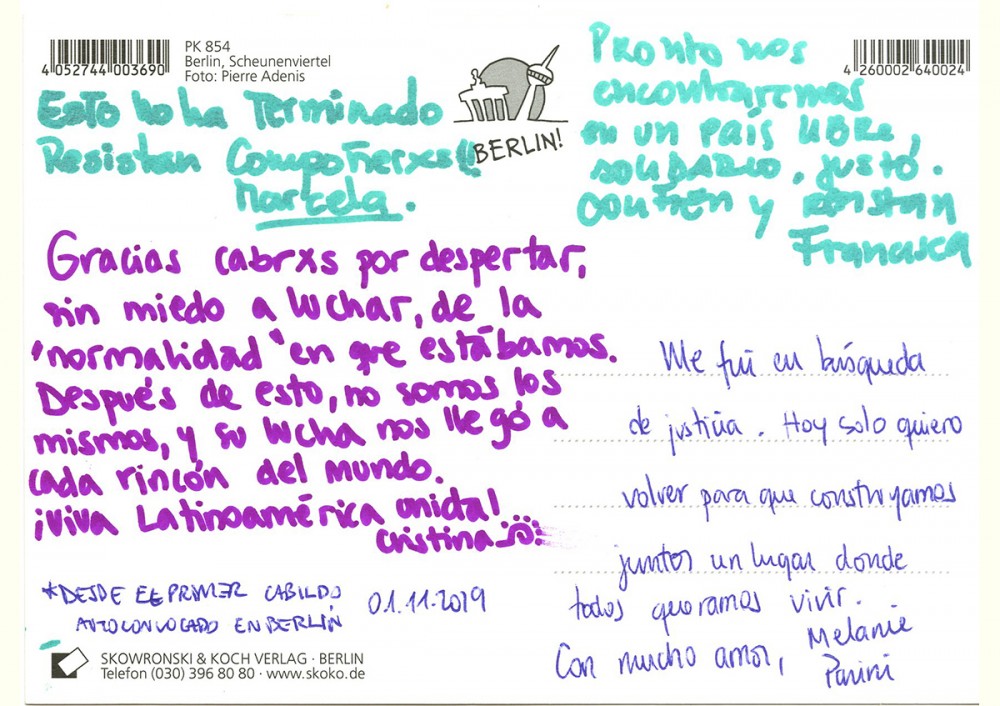 4 052744 003690
PK 854
Berlin, Scheunenviertel
Foto: Pierre Adenis
BERLIN!
4 260002 640024
Esto no ha Terminado
Resistan Compañerxs!!
Marcela.
Pronto nos
encontraremos
en un país libre,
solidario, justo.
y resistan
Francisca
Gracias cabrxs por despertar,
sin miedo a luchar, de la
"normalidad" en que estábamos.
Después de esto, no somos los
mismos, y su lucha nos llegó a
cada rincón del mundo.
¡Viva Latinoamérica unida!
Cristina
Me fui en búsqueda
de justicia. Hoy solo quiero
volver para que construyamos
juntos un lugar donde
todos queramos vivir.
Con mucho amor, Melanie
*DESDE EL PRIMER CABILDO
AUTOCONVOCADO EN BERLÍN
01.11.2019
SKOWRONSKI & KOCH VERLAG · BERLIN
Telefon (030) 396 80 80 · www.skoko.de